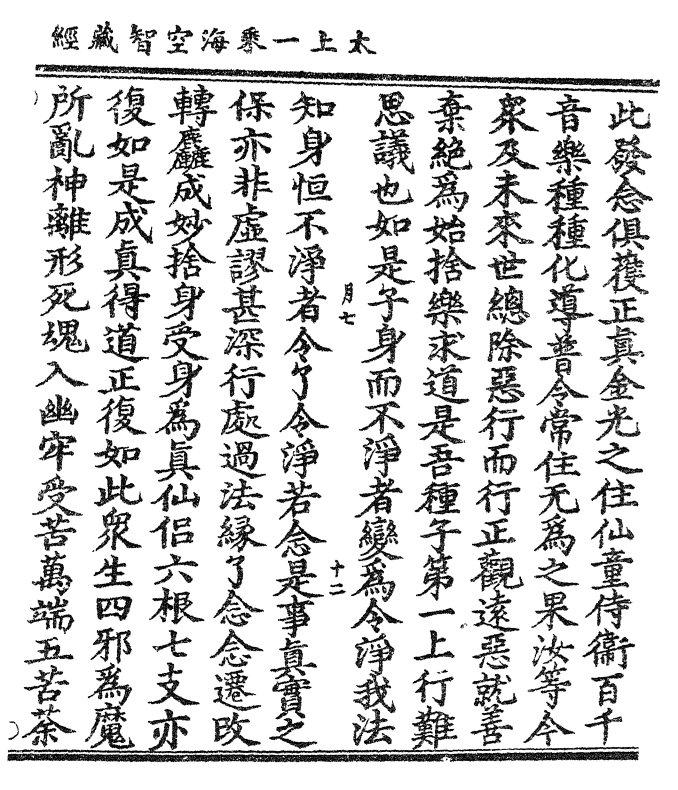 太上一乘海空智藏經
此發念俱獲正真金光之住仙童侍衛百千
音樂種種化導普令常住无為之果汝等今
衆及未來世總除惡行而行正觀遠惡就善
棄絕為始捨樂求道是吾種子第一上行難
思議也如是子身而不淨者變為令淨我法
月七
十二
知身恒不淨者令了令淨若念是事真實之
保亦非虛謬甚深行處過法緣了念念遷改
轉麤成妙捨身受身為真仙侶六根七支亦
復如是成真得道正復如此衆生四邪為魔
所亂神離形死魂入幽牢受苦萬端五苦荼